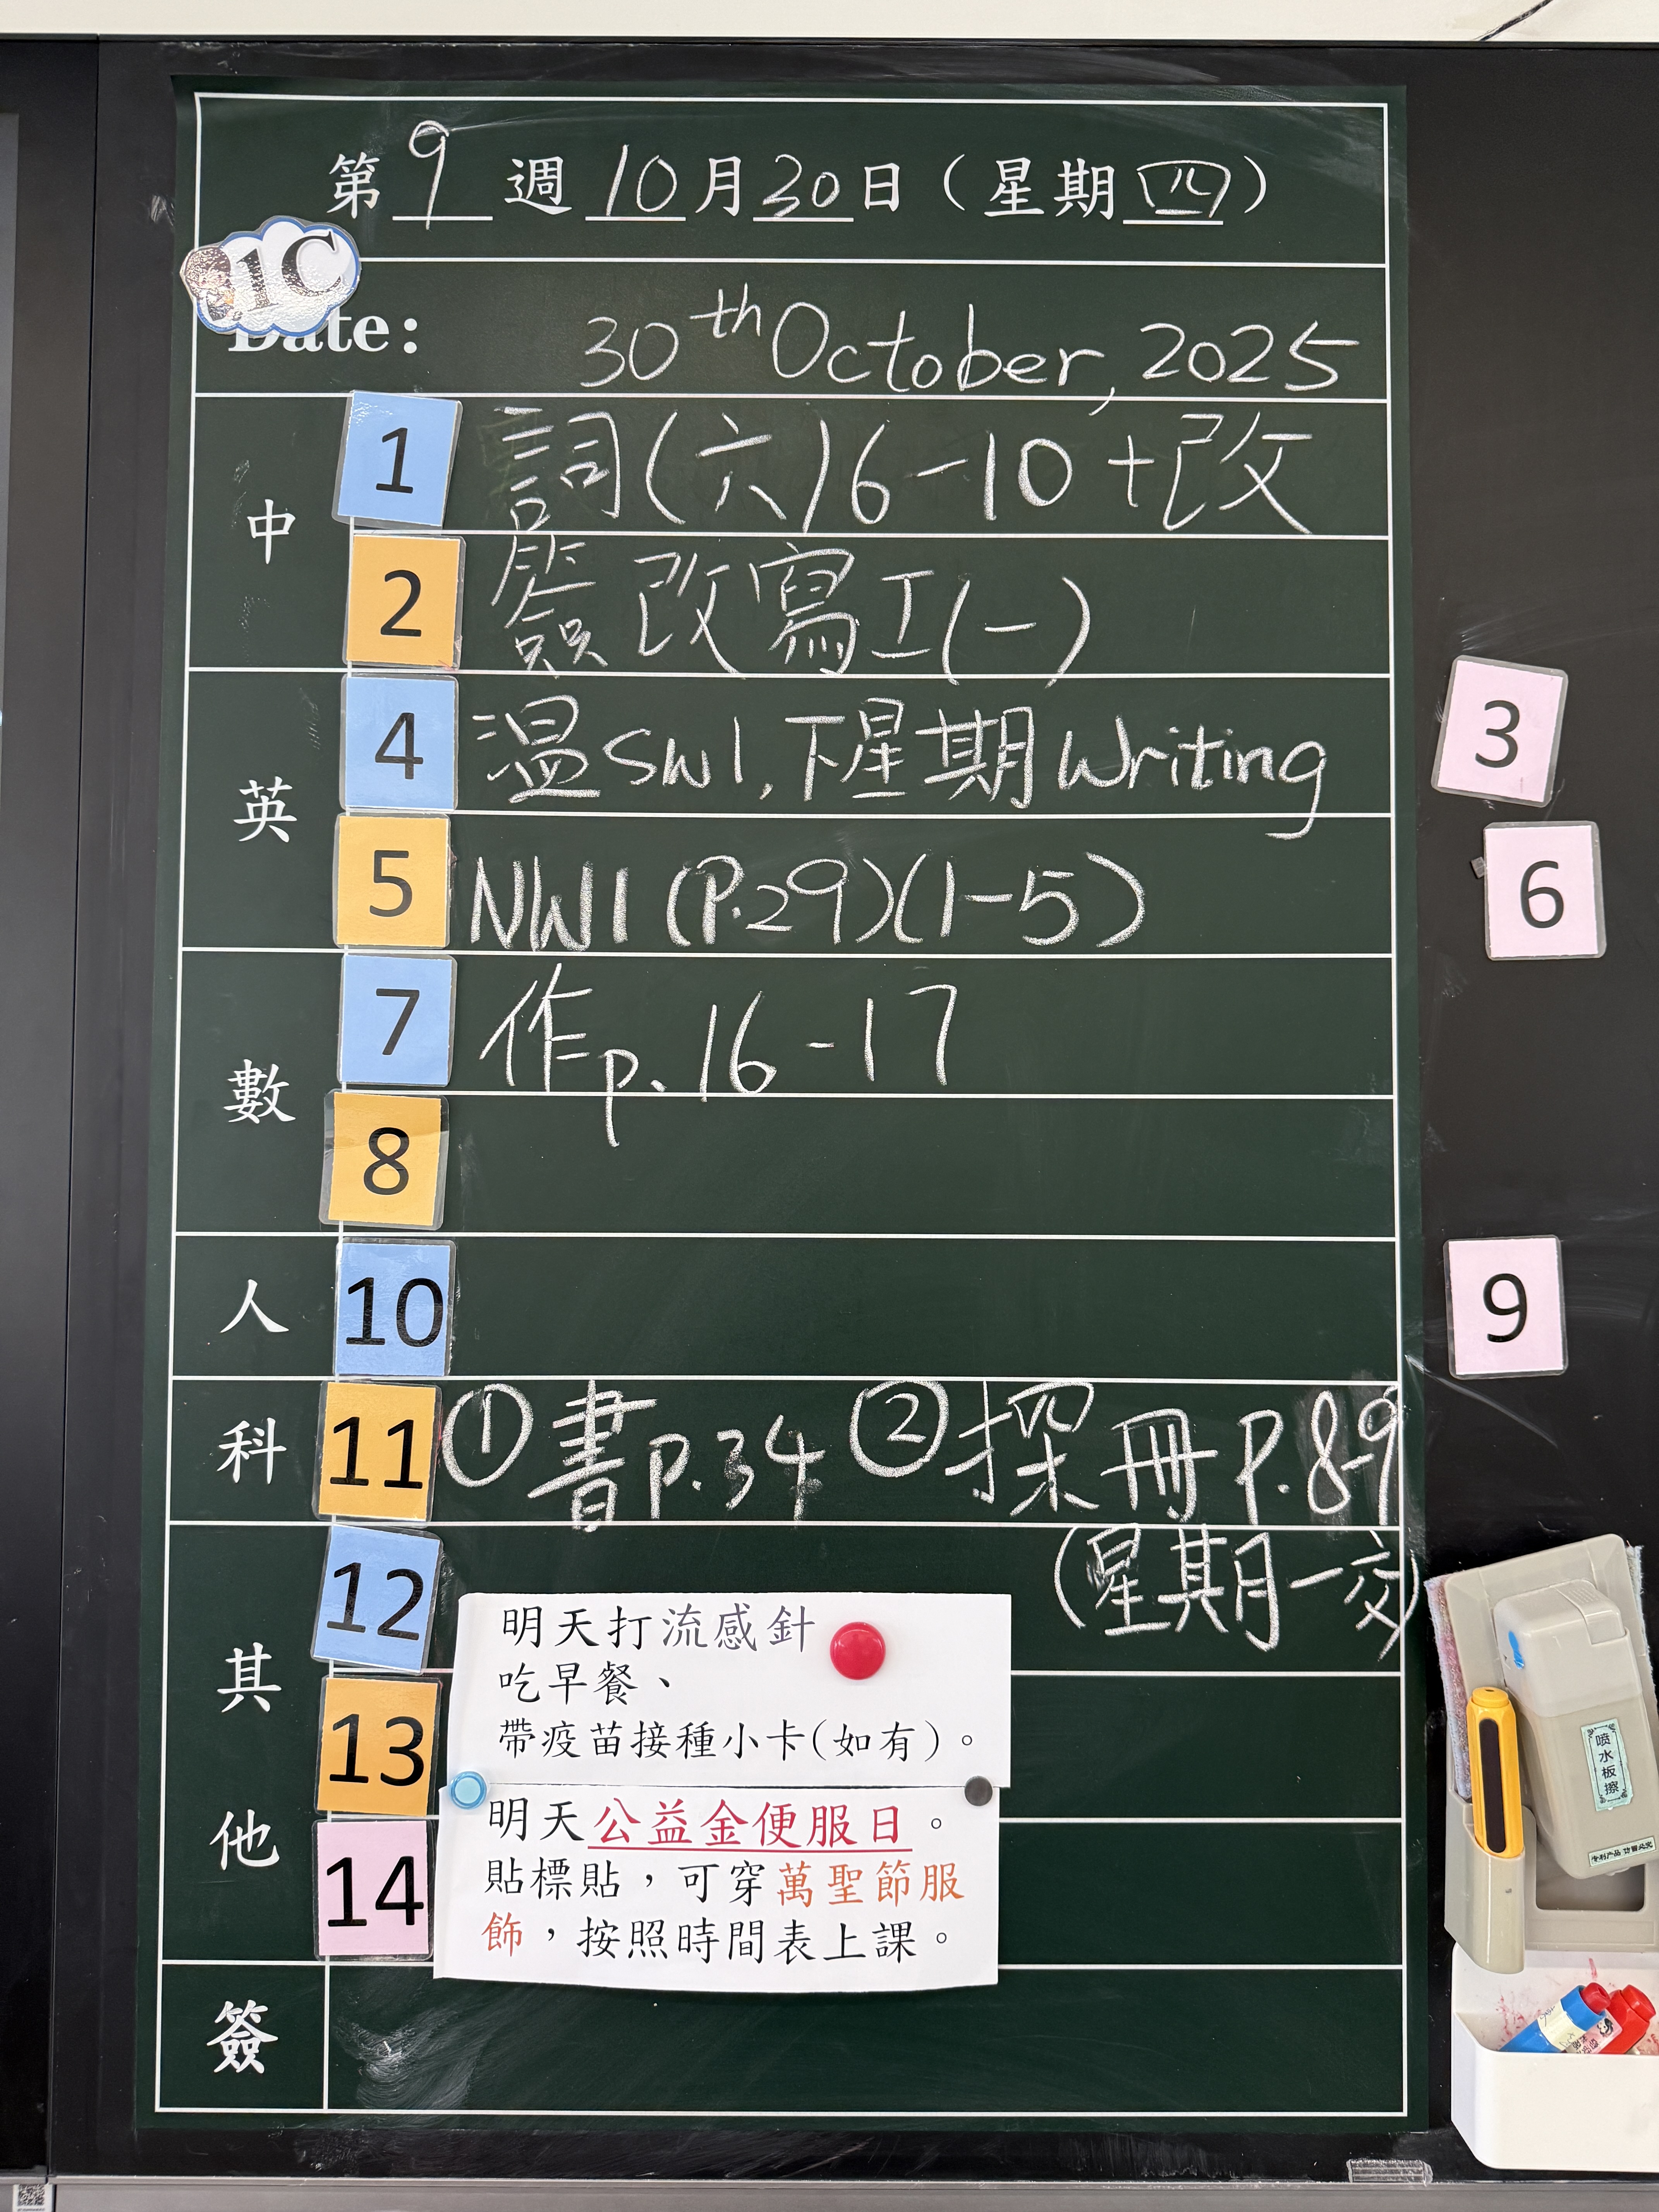 第9週10月30日（星期四）
1C
Date: 30th October, 2025
中
1 詞(六)6-10+改
2 簽改寫工(一)
英
4 温SW1,下星期Writing
3
5 NW1(P.29)(1-5)
6
數
7 作p.16-17
8
人 10
9
科 11 ①書p.34 ②探冊P.8-9
(星期一交)
其他
12
明天打流感針
吃早餐、
帶疫苗接種小卡(如有)。
13
明天公益金便服日。
14
貼標貼，可穿萬聖節服
飾，按照時間表上課。
簽
喷水板擦
专利产品 仿冒必究